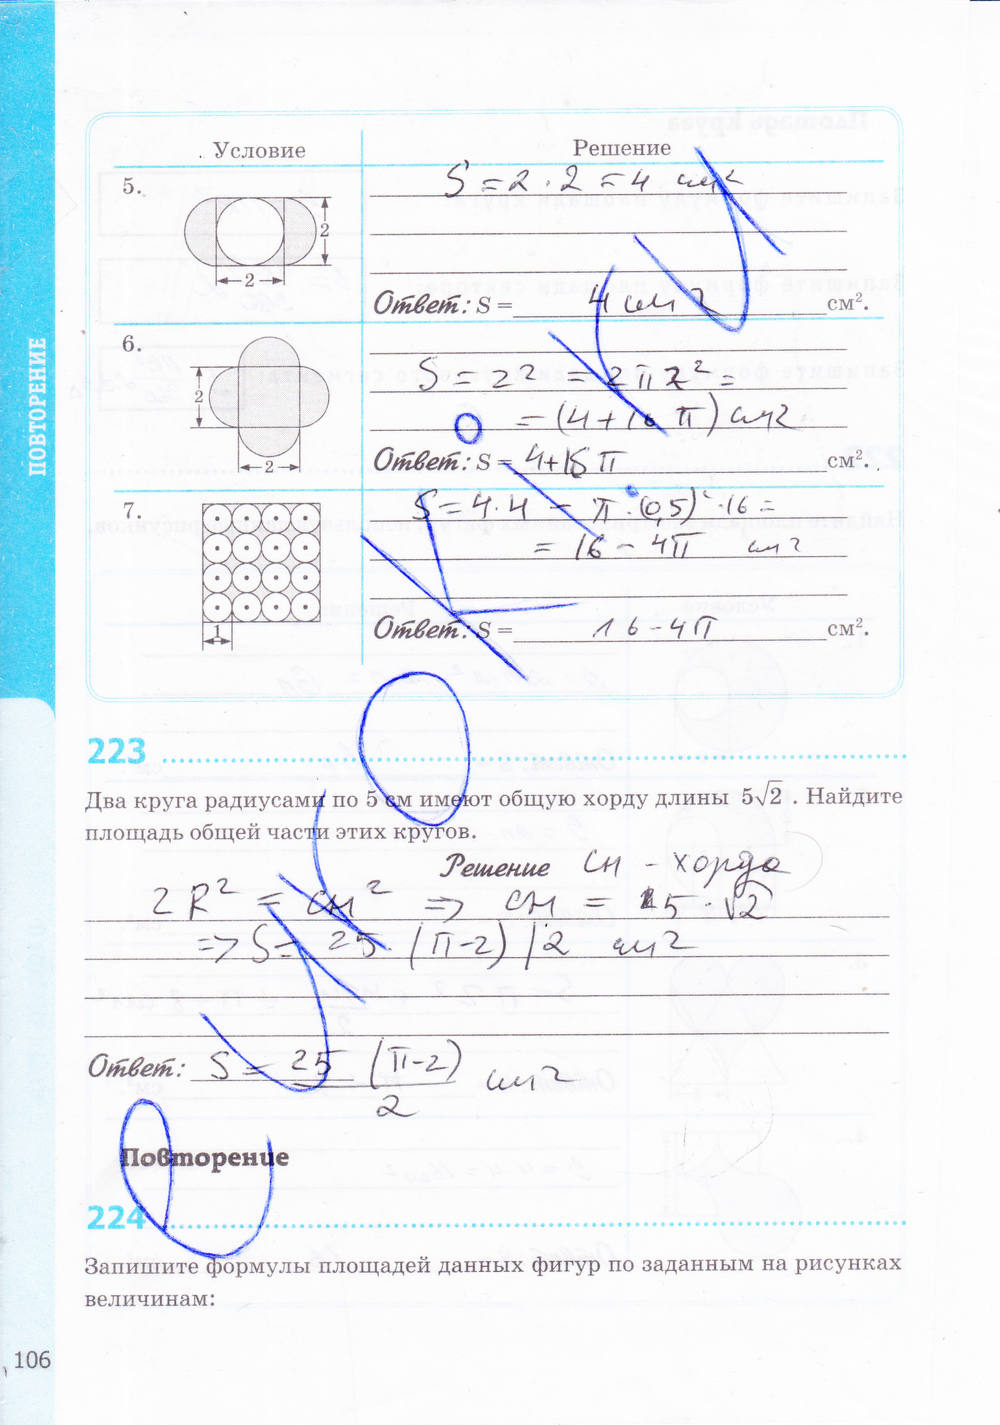 Условие
Решение
5.
2
2
S = 2 · 2 = 4 см²
Ответ: S = 4 см 2 см².
6.
2
2
S = 2² = 2π2² =
= (4 + 16 π) см2
Ответ: S = 4+16π см².
7.
1
S = 4·4 − π·(0,5)²·16 =
= 16 − 4π см²
Ответ: S = 16−4π см².
ПОВТОРЕНИЕ
223
Два круга радиусами по 5 см имеют общую хорду длины 5√2. Найдите
площадь общей части этих кругов.
Решение CH - хорда
2R² = CH² => CH = 5·√2
=> S = 25 · (π-2) / 2 см2
Ответ: S = 25 (π-2) / 2 см2
Повторение
224
Запишите формулы площадей данных фигур по заданным на рисунках
величинам:
106